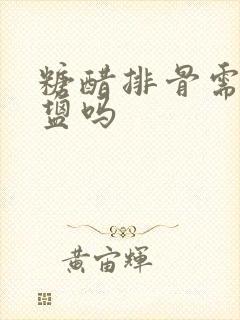 糖醋排骨需
盐吗
黄宙辉